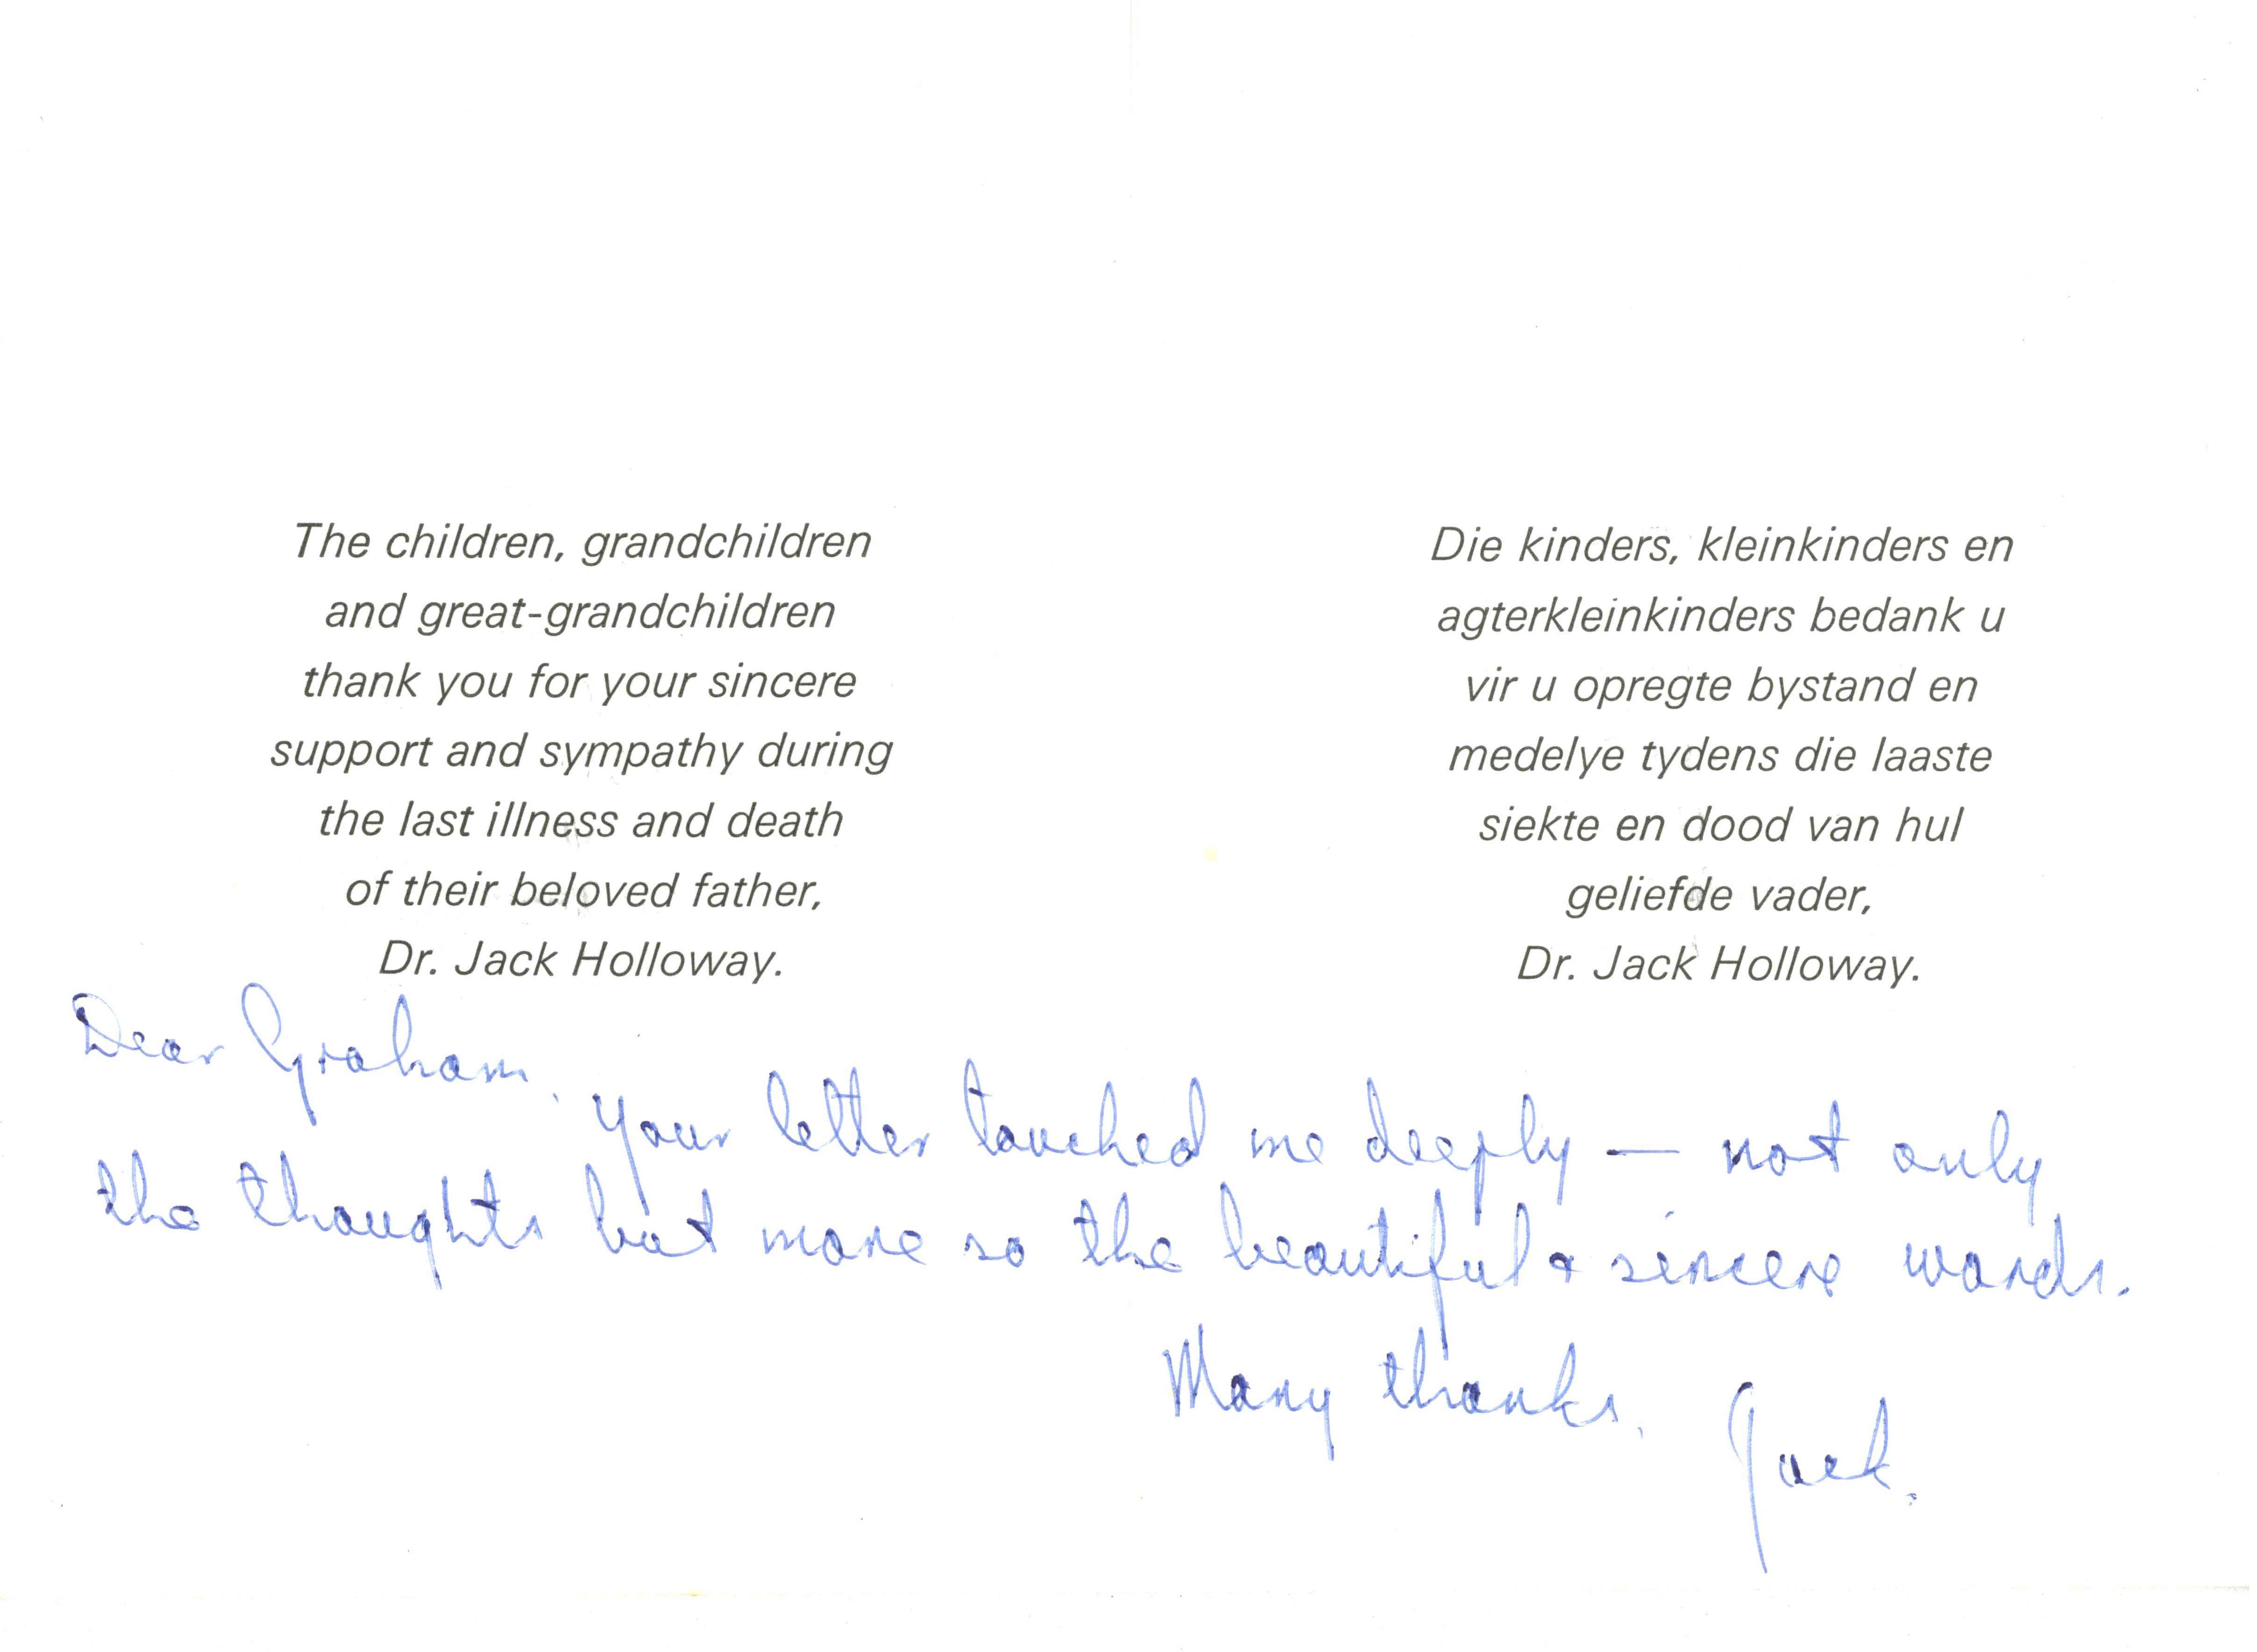 The children, grandchildren
and great-grandchildren
thank you for your sincere
support and sympathy during
the last illness and death
of their beloved father,
Dr. Jack Holloway.
Die kinders, kleinkinders en
agterkleinkinders bedank u
vir u opregte bystand en
medelye tydens die laaste
siekte en dood van hul
geliefde vader,
Dr. Jack Holloway.
Dear Graham,
Your letter touched me deeply — not only
the thoughts but more so the beautiful & sincere words.
Many thanks,
Jack.